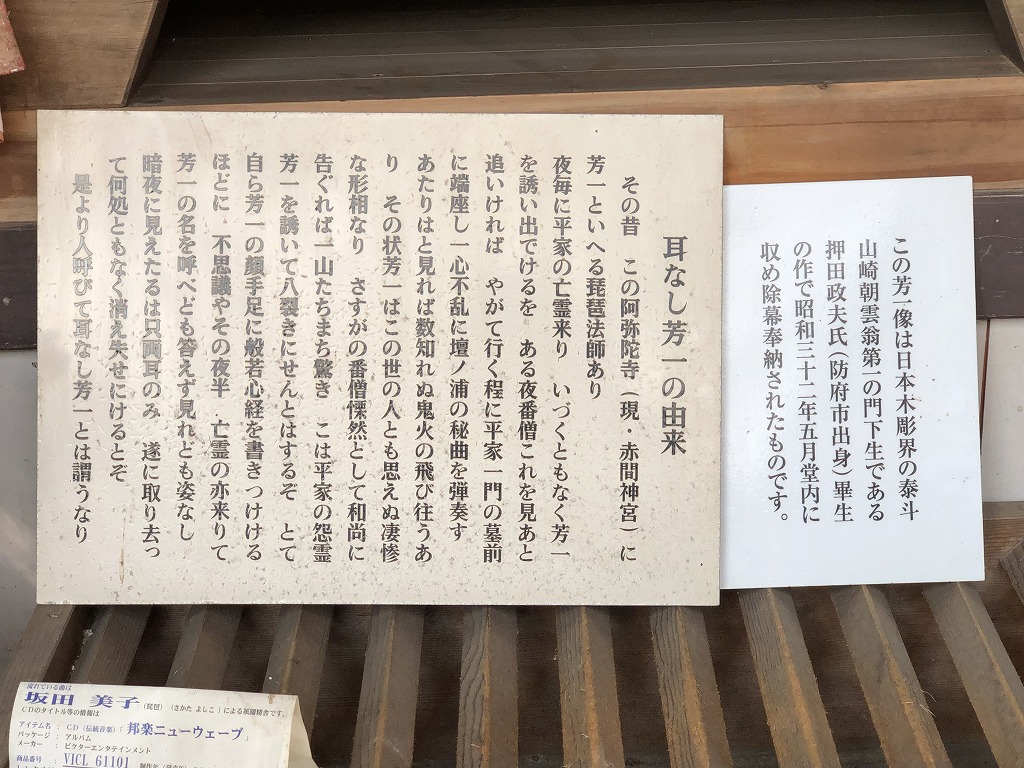 耳なし芳一の由来
その昔　この阿弥陀寺（現・赤間神宮）に
芳一といへる琵琶法師あり
夜毎に平家の亡霊来り　いづくともなく芳一
を誘い出でけるを　ある夜番僧これを見あと
追いければ　やがて行く程に平家一門の墓前
に端座し一心不乱に壇ノ浦の秘曲を弾奏す
あたりはと見れば数知れぬ鬼火の飛び往うあ
り　その状芳一はこの世の人とも思えぬ凄惨
な形相なり　さすがの番僧慄然として和尚に
告ぐれば一山たちまち驚き　こは平家の怨霊
芳一を誘いて八裂きにせんとはするぞ　とて
自ら芳一の顔手足に般若心経を書きつけける
ほどに　不思議やその夜半　亡霊の亦来りて
芳一の名を呼べども答えず見れども姿なし
暗夜に見えたるは只両耳のみ　遂に取り去っ
て何処ともなく消え失せにけるとぞ
是より人呼びて耳なし芳一とは謂うなり
この芳一像は日本木彫界の泰斗
山崎朝雲翁第一の門下生である
押田政夫氏（防府市出身）畢生
の作で昭和三十二年五月堂内に
収め除幕奉納されたものです。
流れている曲は
坂田 美子（琵琶）（さかた よしこ）による祇園精舎です。
CDのタイトル等の情報は
アイテム名 ： CD（伝統音楽）「邦楽ニューウェーブ」
パッケージ ： アルバム
メーカー ： ビクターエンタテインメント
商品番号 ： VICL 61101